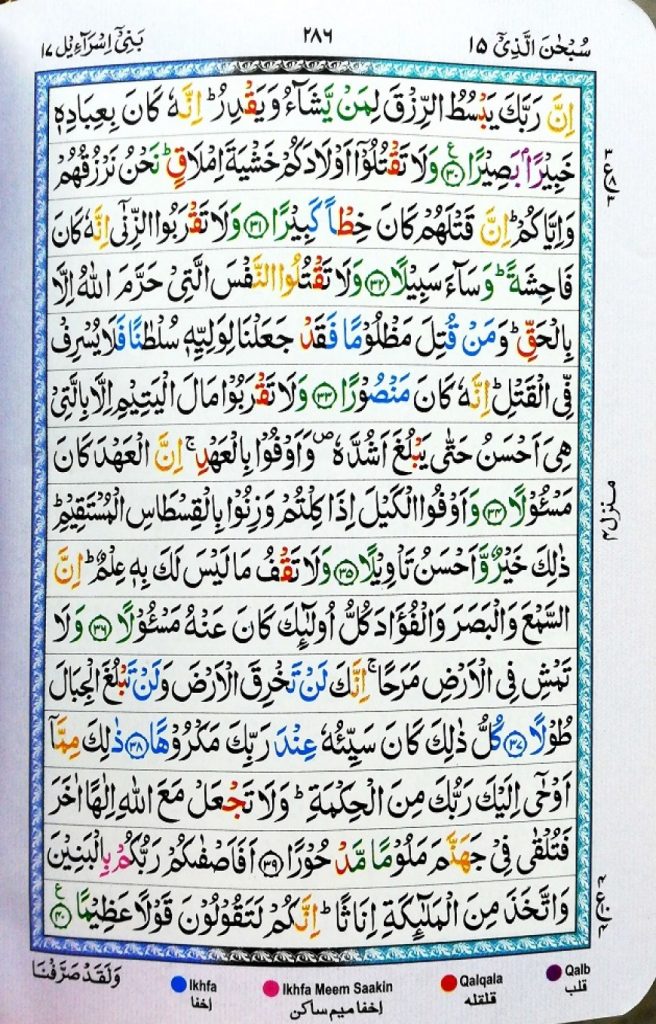 سُبْحٰنَ الَّذِیْۤ ١٥
٢٨٦
بَنِیْۤ اِسْرَآءِیْل ١٧
اِنَّ رَبَّكَ یَبْسُطُ الرِّزْقَ لِمَنْ یَّشَآءُ وَ یَقْدِرُ ؕ اِنَّهٗ كَانَ بِعِبَادِهٖ
خَبِیْرًۢا بَصِیْرًا ﴿٣٠﴾ وَلَا تَقْتُلُوْۤا اَوْلَادَكُمْ خَشْیَةَ اِمْلَاقٍ ؕ نَحْنُ نَرْزُقُهُمْ
وَاِیَّاكُمْ ؕ اِنَّ قَتْلَهُمْ كَانَ خِطْاً كَبِیْرًا ﴿٣١﴾ وَلَا تَقْرَبُوا الزِّنٰۤی اِنَّهٗ كَانَ
فَاحِشَةً ؕ وَسَآءَ سَبِیْلًا ﴿٣٢﴾ وَلَا تَقْتُلُوا النَّفْسَ الَّتِیْ حَرَّمَ اللّٰهُ اِلَّا
بِالْحَقِّ ؕ وَمَنْ قُتِلَ مَظْلُوْمًا فَقَدْ جَعَلْنَا لِوَلِیِّهٖ سُلْطٰنًا فَلَا یُسْرِفْ
فِّی الْقَتْلِ ؕ اِنَّهٗ كَانَ مَنْصُوْرًا ﴿٣٣﴾ وَلَا تَقْرَبُوْا مَالَ الْیَتِیْمِ اِلَّا بِالَّتِیْ
هِیَ اَحْسَنُ حَتّٰی یَبْلُغَ اَشُدَّهٗ ۪ وَاَوْفُوْا بِالْعَهْدِ ۚ اِنَّ الْعَهْدَ كَانَ
مَسْـُٔوْلًا ﴿٣٤﴾ وَاَوْفُوا الْكَیْلَ اِذَا كِلْتُمْ وَزِنُوْا بِالْقِسْطَاسِ الْمُسْتَقِیْمِ ؕ
ذٰلِكَ خَیْرٌ وَّاَحْسَنُ تَاْوِیْلًا ﴿٣٥﴾ وَلَا تَقْفُ مَا لَیْسَ لَكَ بِهٖ عِلْمٌ ؕ اِنَّ
السَّمْعَ وَالْبَصَرَ وَالْفُؤَادَ كُلُّ اُولٰٓئِكَ كَانَ عَنْهُ مَسْـُٔوْلًا ﴿٣٦﴾ وَلَا
تَمْشِ فِی الْاَرْضِ مَرَحًا ۚ اِنَّكَ لَنْ تَخْرِقَ الْاَرْضَ وَلَنْ تَبْلُغَ الْجِبَالَ
طُوْلًا ﴿٣٧﴾ كُلُّ ذٰلِكَ كَانَ سَیِّئُهٗ عِنْدَ رَبِّكَ مَكْرُوْهًا ﴿٣٨﴾ ذٰلِكَ مِمَّاۤ
اَوْحٰۤی اِلَیْكَ رَبُّكَ مِنَ الْحِكْمَةِ ؕ وَلَا تَجْعَلْ مَعَ اللّٰهِ اِلٰهًا اٰخَرَ
فَتُلْقٰی فِیْ جَهَنَّمَ مَلُوْمًا مَّدْحُوْرًا ﴿٣٩﴾ اَفَاَصْفٰىكُمْ رَبُّكُمْ بِالْبَنِیْنَ
وَاتَّخَذَ مِنَ الْمَلٰٓئِكَةِ اِنَاثًا ؕ اِنَّكُمْ لَتَقُوْلُوْنَ قَوْلًا عَظِیْمًا ﴿٤٠﴾
منزل ٤
وَلَقَدْ صَرَّفْنَا
Ikhfa
اِخفا
Ikhfa Meem Saakin
اِخفا میم ساکن
Qalqala
قلقله
Qalb
قلب